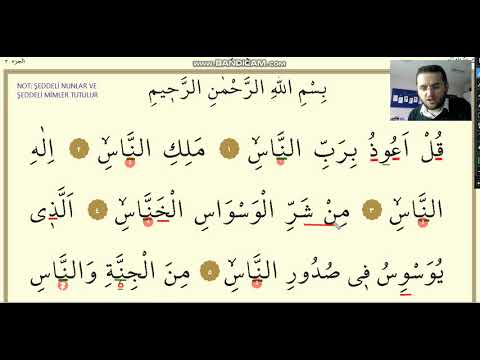 www.BANDICAM.com
الجزء ٣٠
NOT: ŞEDDELİ NUNLAR VE
ŞEDDELİ MİMLER TUTULUR
بِسْمِ اللّٰهِ الرَّحْمٰنِ الرَّح۪يمِ
قُلْ اَعُوذُ بِرَبِّ النَّاسِۙ ﴿١﴾ مَلِكِ النَّاسِۙ ﴿٢﴾ اِلٰهِ
النَّاسِۙ ﴿٣﴾ مِنْ شَرِّ الْوَسْوَاسِ الْخَنَّاسِۙ ﴿٤﴾ اَلَّذ۪ى
يُوَسْوِسُ ف۪ى صُدُورِ النَّاسِۙ ﴿٥﴾ مِنَ الْجِنَّةِ وَالنَّاسِ